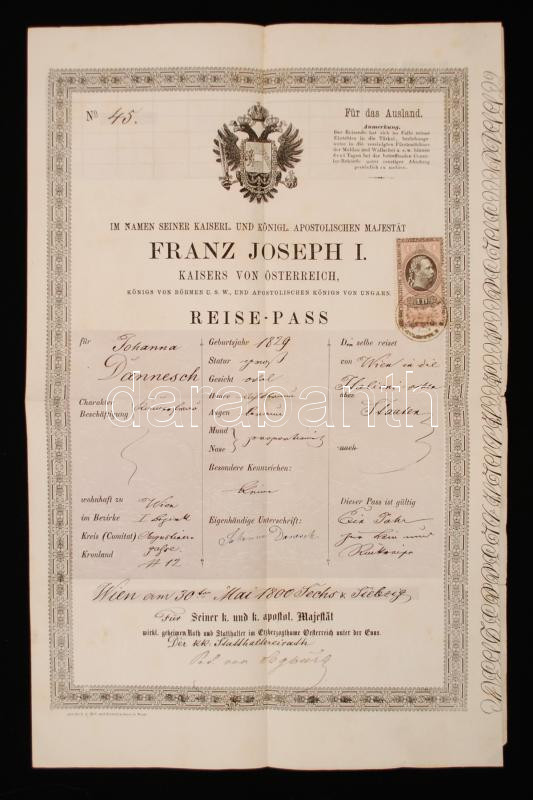 Nº 45.
Für das Ausland.
Anmerkung.
Der Reisende hat sich im Falle seines
Eintritts in die Türkei, beziehungs-
weise in die vereinigten Fürstenthümer
der Moldau und Wallachei u. s. w. binnen
drei Tagen bei der betreffenden Consu-
lar-Behörde unter sonstiger Ahndung
persönlich zu melden.
IM NAMEN SEINER KAISERL. UND KÖNIGL. APOSTOLISCHEN MAJESTÄT
FRANZ JOSEPH I.
KAISERS VON ÖSTERREICH,
KÖNIGS VON BÖHMEN U. S. W., UND APOSTOLISCHEN KÖNIGS VON UNGARN.
REISE-PASS
für Johanna
Dannesch
Charakter
Beschäftigung
wohnhaft zu Wien
im Bezirke I Bezirk
Kreis (Comitat) Augustiner
Kronland gasse
# 12
Geburtsjahr 1829
Statur gross
Gesicht oval
Haare
Augen braun
Mund
Nase
proportionirt
Besondere Kennzeichen:
keine
Eigenhändige Unterschrift:
Johanna Dannesch
Die selbe reiset
von Wien in die
über
Staaten
nach
Dieser Pass ist gültig
Ein Jahr
Wien am 30ten Mai 1800 Sechs & Siebzig
Für Seiner k. und k. apostol. Majestät
wirkl. geheimen Rath und Statthalter im Erzherzogthume Oesterreich unter der Enns.
Der kk. Statthaltereirath
darabanth